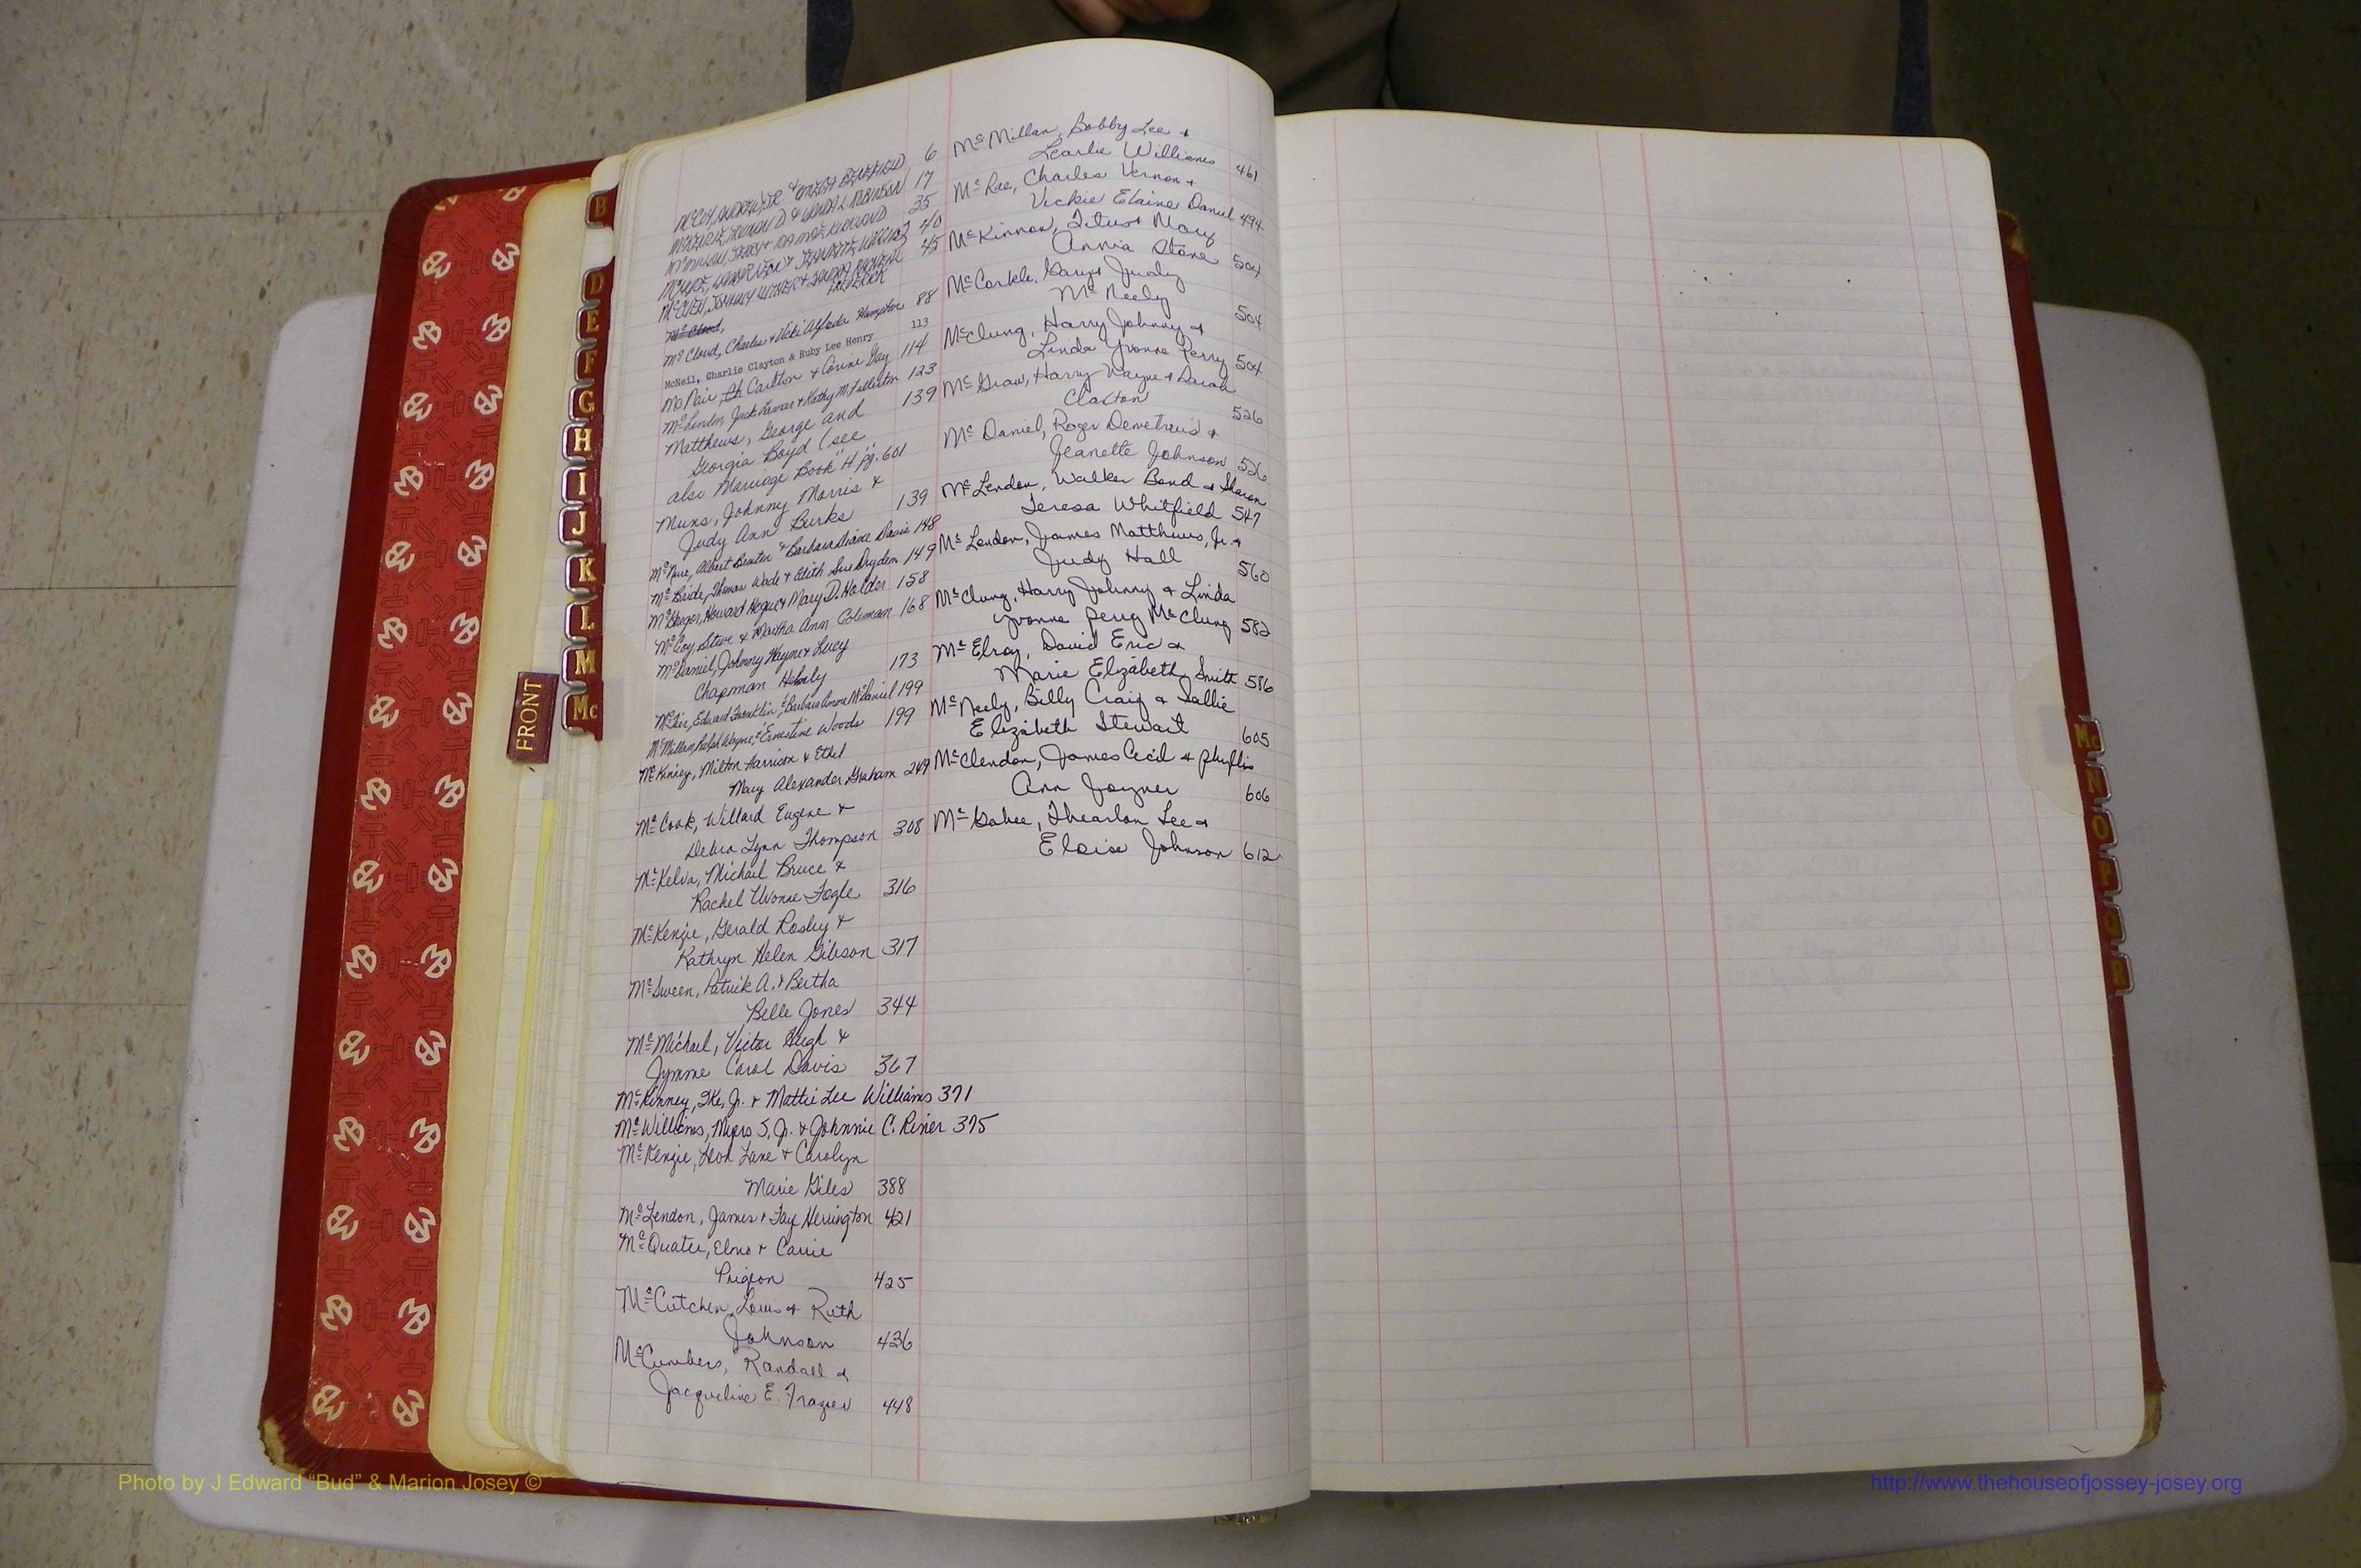 B
D
E
F
G
H
I
J
K
L
M
Mc
FRONT
6
17
35
40
45
McCloud,
McCloud, Charles & Vicki Alfreda Hampton 88
McNeil, Charlie Clayton & Ruby Lee Henry 113
McNair, Carlton & Corine Gay 114
McLendon, Jack Lamar & Kathy M. Fullerton 123
Matthews, George and 139
Georgia Boyd (see
also Marriage Book "H" pg. 601
Muns, Johnny Morris &
Judy Ann Burks 139
McNure, Albert Benton & Barbara Diane Davis 148
McBride, Thomas Wade & Edith Sue Dryden 149
Howard Hogue & Mary D. Holder 158
McCoy, Steve & Martha Ann Coleman 168
McDaniel, Johnny Hayne & Lucy
Chapman 173
Edward Franklin, & Barbara Anne McDaniel 199
McMillan, Ralph Wayne, & Ernestine Woods 199
McKiney, Milton Harrison & Ethel
Mary Alexander Graham 249
McCook, Willard Eugene &
Debra Lynn Thompson 308
McKelva, Michael Bruce &
Rachel Uvonne Fogle 316
McKenzie, Gerald Rosley &
Kathryn Helen Gibson 317
McSween, Patrick A. & Bertha
Belle Jones 344
McMichael, Victor Hugh &
Jymme Carol Davis 367
McKinney, Ike, Jr. & Mattie Lee Williams 371
McWilliams, Myers S, Jr. & Johnnie C. Riner 375
McKenzie, Lane & Carolyn
Marie Giles 388
McLendon, James & Fay Herrington 421
McQuater, Elmo & Carrie
425
McCutchen, Louis & Ruth
Johnson 436
McCumbers, Randall &
Jacqueline E. Frazier 448
McMillan, Bobby Lee &
Learlie Williams 461
McRae, Charles Vernon &
Vickie Elaine Daniel 494
McKinnon, Titus & Mary
Annia Stone 504
McCorkle, Gary & Judy
McNeely 504
McClung, Harry Johnny &
Linda Yvonne Perry 504
McGraw, Harry Wayne & Sarah
Claxton 526
McDaniel, Roger Demetrius &
Jeanette Johnson 526
McLendon, Walker Bond & Sharon
Teresa Whitfield 547
McLendon, James Matthews, Jr. &
Judy Hall 560
McClung, Harry Johnny & Linda
Yvonne Perry McClung 582
McElroy, David Eric &
Marie Elizabeth Smith 586
McNeely, Billy Craig & Sallie
Elizabeth Stewart 605
McClendon, James Cecil & Phyllis
Ann Joyner 606
McGahee, Thearlon Lee &
Eloise Johnson 612
Mc
N
O
P
Q
R
Photo by J Edward “Bud” & Marion Josey ©
http://www.thehouseofjossey-josey.org